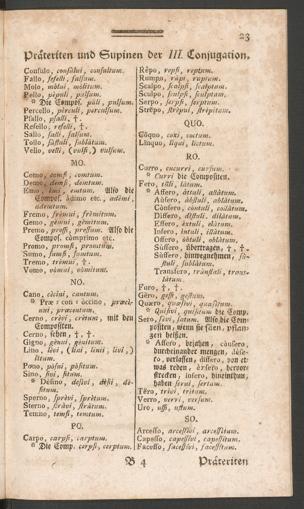 23
Präteriten und Supinen der III. Conjugation.
Consulo, consului, consultum.
Fallo, fefelli, falsum.
Molo, molui, molitum.
Pello, pepuli, pulsum.
* Die Compos. puli, pulsum.
Percello, perculi, perculsum.
Psallo, psalli, †.
Refello, refelli, †.
Sallo, salli, salsum.
Tollo, sustuli, sublatum.
Vello, velli, (vulsi,) vulsum.
MO.
Como, comsi, comtum.
Demo, demsi, demtum.
Emo, emi, emtum. Also die
Compos. adimo etc., ademi,
ademtum.
Fremo, fremui, fremitum.
Gemo, gemui, gemitum.
Premo, pressi, pressum. Also die
Compos. comprimo etc.
Promo, promsi, promtum.
Sumo, sumsi, sumtum.
Tremo, tremui, †.
Vomo, vomui, vomitum.
NO.
Cano, cecini, cantum.
* Præ con occino, præci-
nui, præcentum.
Cerno, crevi, cretum, mit den
Compositen.
Cerno, sehen, †, †.
Gigno, genui, genitum.
Lino, levi, (lini, livi,)
litum.
Pono, posui, positum.
Sino, sivi, situm.
* Desino, desivi, desii, de-
situm.
Sperno, sprevi, spretum.
Sterno, stravi, stratum.
Temno, temsi, temtum.
PO.
Carpo, carpsi, carptum.
* Die Comp. cerpsi, cerptum.
Repo, repsi, reptum.
Rumpo, rupi, ruptum.
Scalpo, scalpsi, scalptum.
Sculpo, sculpsi, sculptum.
Serpo, serpsi, serptum.
Strepo, strepui, strepitum.
QUO.
Coquo, coxi, coctum.
Linquo, liqui, lictum.
RO.
Curro, cucurri, cursum.
* Curri die Compositen.
Fero, tuli, latum.
* Affero, attuli, allatum.
Aufero, abstuli, ablatum.
Confero, contuli, collatum.
Differo, distuli, dilatum.
Effero, extuli, elatum.
Infero, intuli, illatum.
Offero, obtuli, oblatum.
Suffero, übertragen, †, †.
Suffero, hinwegnehmen, su-
stuli, sublatum.
Transfero, transtuli, trans-
latum.
Furo, †, †.
Gero, gessi, gestum.
Quæro, quæsivi, quæsitum.
* Quisivi, quisitum die Comp.
Sero, sevi, satum. Also die Com-
positen, wenn sie säen, pflan-
zen heißen.
* Assero, bejahen, consero,
durcheinander mengen, dese-
ro, verlassen, dissero, von et-
was reden, exsero, hervor-
strecken, insero, hineinthun,
haben serui, sertum.
Tero, trivi, tritum.
Verro, verri, versum.
Uro, ussi, ustum.
SO.
Arcesso, arcessivi, arcessitum.
Capesso, capessivi, capessitum.
Facesso, facessivi, facessitum.
B 4
Präteriten